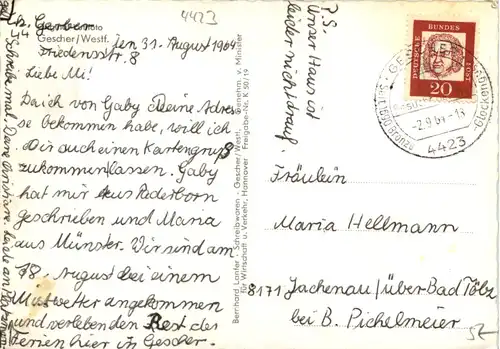 4423
Gescher/Westf.
Friedensstr. 8
den 31. August 1964
Liebe Mi!
Da ich von Gaby Deine Adres-
se bekommen habe, will ich
Dir auch einen Kartengruß
zukommen lassen. Gaby
hat mir aus Paderborn
geschrieben und Maria
aus Münster. Wir sind am
18. August bei einem
Mistwetter angekommen
und verleben den Rest der
Ferien hier in Gescher.
Schreibe mal. Deine Christiane.
P.S.
Unser Haus ist
leider nicht drauf.
Bernhard Lanfer · Schreibwaren · Gescher/Westf.
für Wirtschaft u. Verkehr, Hannover Freigabe-Nr. K 50.19
DEUTSCHE BUNDESPOST
20
-2.9.64-13
4423
Fräulein
Maria Hellmann
8171 Jachenau/über Bad Tölz
bei B. Pichelmeier